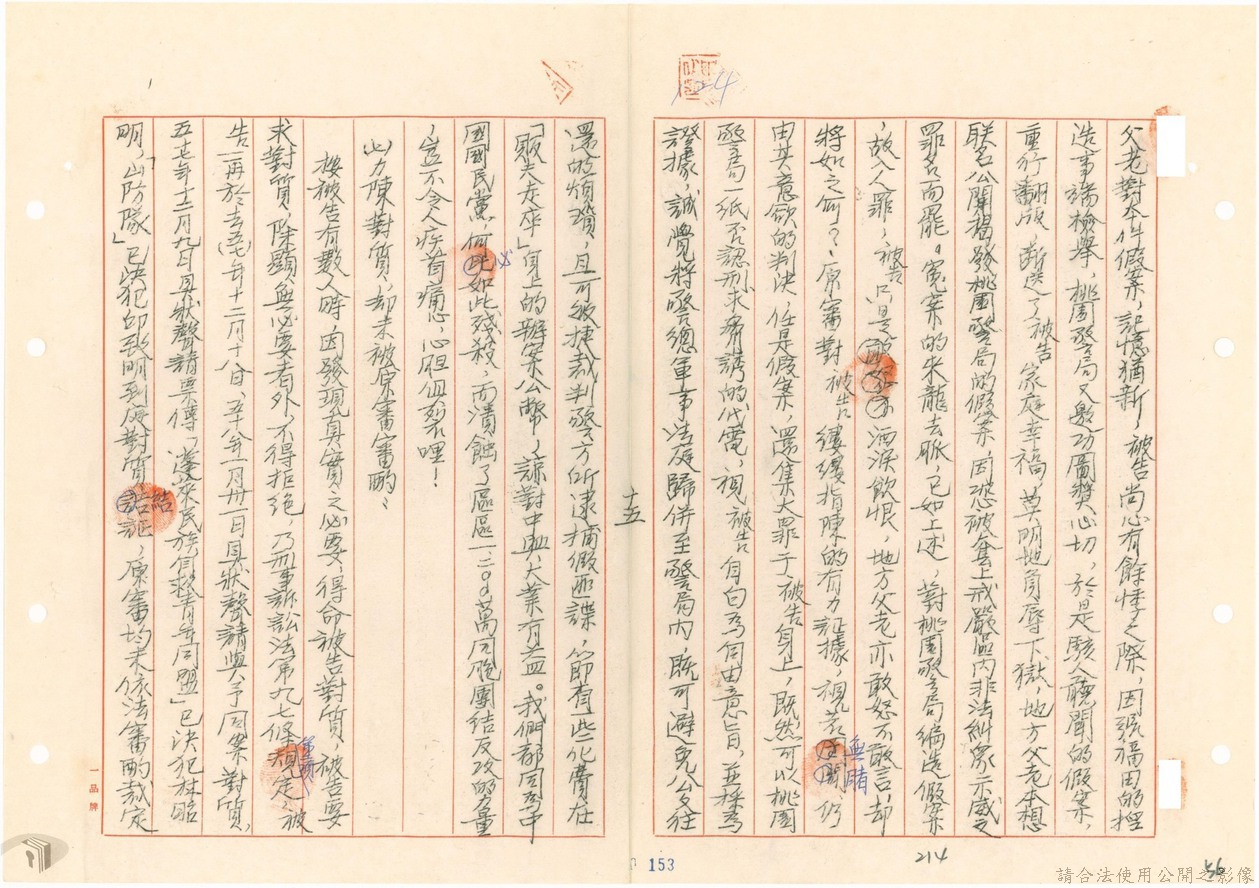 父老對本件假案，記憶猶新，被告尚心有餘悸之際，因張福田的捏
造事端檢舉，桃園警局又邀功圖獎心切，於是駭人聽聞的假案，
重行翻版，斷送了被告家庭幸福，莫明地負辱下獄，地方父老本想
联名公開揭發桃園警局的假案，因恐被套上戒嚴區內非法糾眾示威之
罪名而罷。冤案的來龍去脈，已如上述，對桃園警局編造假案
，故人罪，被告只是 洒淚飲恨，地方父老亦敢怒不敢言，却
將如之何？，原審對被告縷縷指陳的有力証據，視若無睹，仍
由其意欲的判決，任是假案，還集大罪于被告身上，既然可以桃園
警局一紙否認刑求脅誘的代電，視被告自白為自由意旨，並採為
證據，誠覺將警總軍事法庭歸併至警局內，既可避免公文往
十五
還的煩瑣，且可彼捷裁判警方所逮捕假匪諜，節有一些化費在
「販夫走卒」身上的辦案公幣，諒對中興大業有益。我們都同為中
國國民黨，何必如此殘殺，而潰蝕了區區一二〇〇萬同胞團結反攻的力量
，豈不令人疾首痛心，心胆血裂哩！
山力陳對質，却未被原審審酌：
按被告有數人時，因發現真實之必要，得命被告對質，被告要
求對質，除顯無必要者外，不得拒絕，乃刑事訴訟法第九七條規定，被
告一再於去(57)年十二月十八日、五八年一月卅一日具狀聲請與予同案對質，
五七年十二月九日具狀聲請票傳「蓬萊民族自救青年同盟」已決犯林昭
明，「山防隊」已決犯邱致明到庭對質結証，原審均未依法審酌裁定
153
214
56
一品牌
請合法使用公開之影像